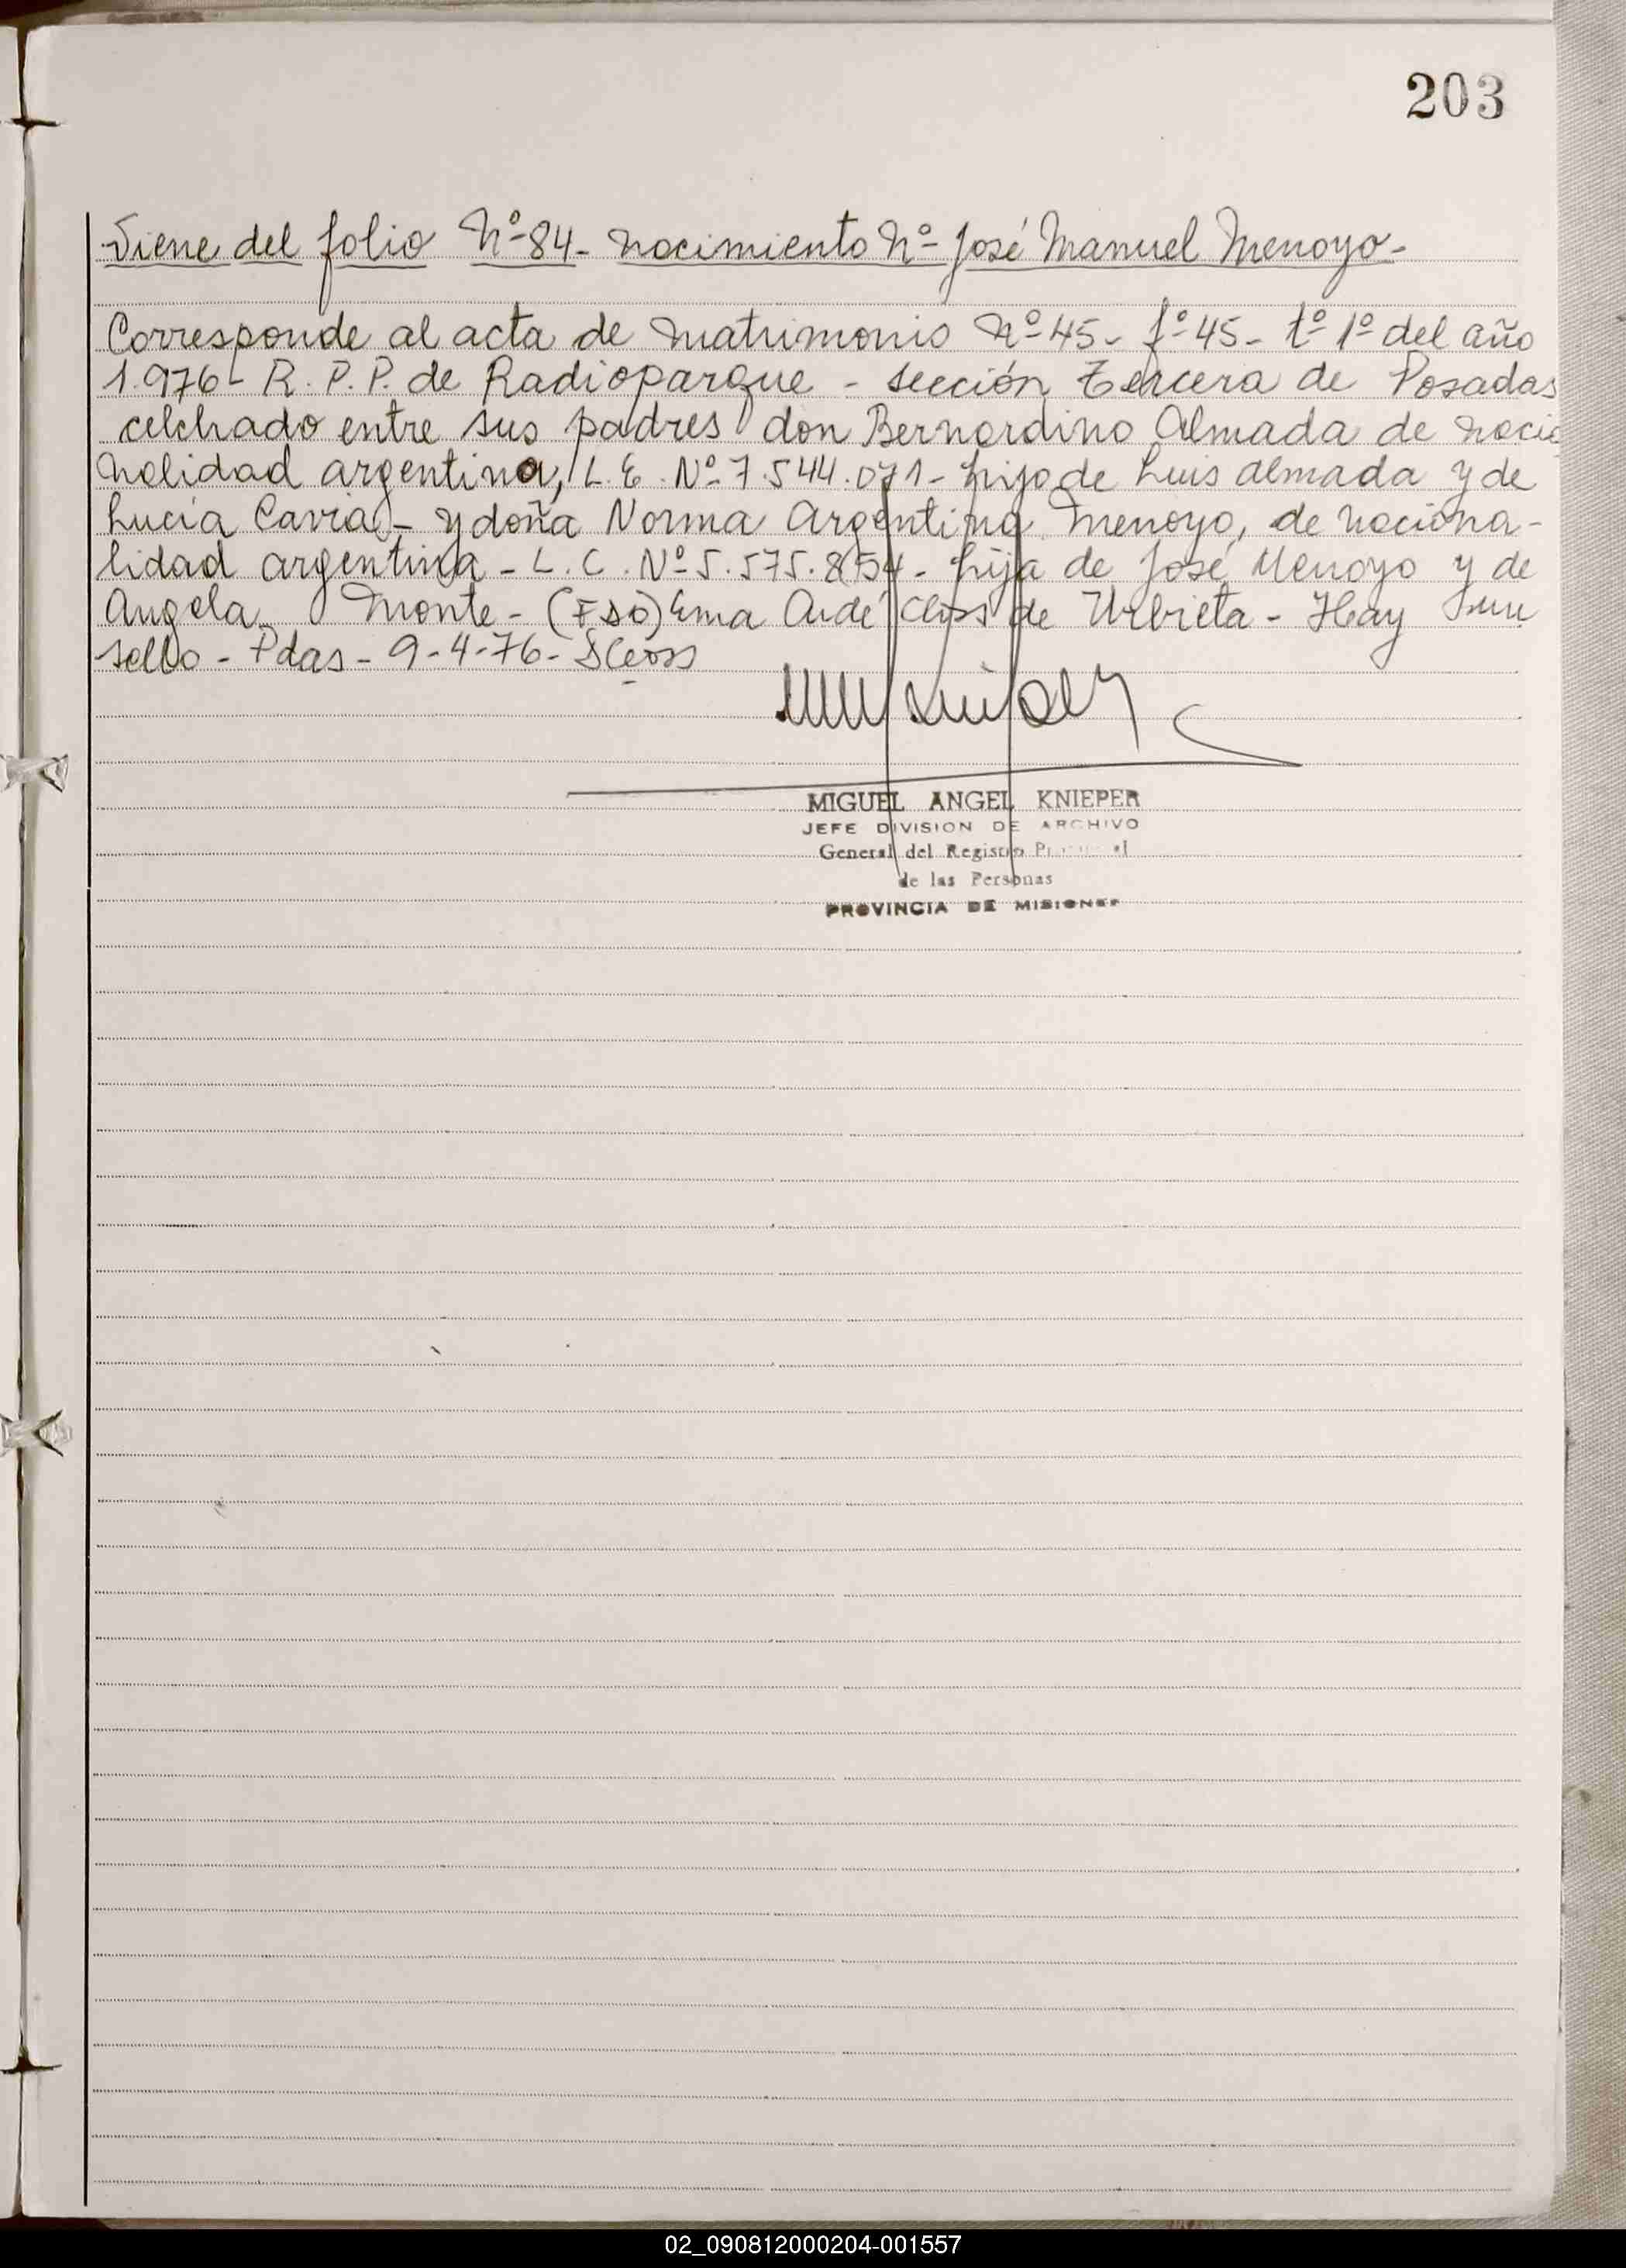 203
Viene del folio Nº 84- Nacimiento Nº- José Manuel Menoyo-
Corresponde al acta de matrimonio Nº 45- fº 45- tº 1º del año
1.976- R. P. P. de Radioparque - sección Tercera de Posadas
celebrado entre sus padres don Bernardino Almada de nacio
nalidad argentina, L. E. Nº 7.544.071- hijo de Luis Almada y de
Lucía Cavia - y doña Norma Argentina Menoyo, de naciona-
lidad argentina - L. C. Nº 5.575.854 - hija de José Menoyo y de
Angela Monte - (FDO) Ema de Urbieta - Hay un
sello - Pdas - 9-4-76-
MIGUEL ANGEL KNIEPER
JEFE DIVISION DE ARCHIVO
General del Registro
de las Personas
PROVINCIA DE MISIONES
02_090812000204-001557